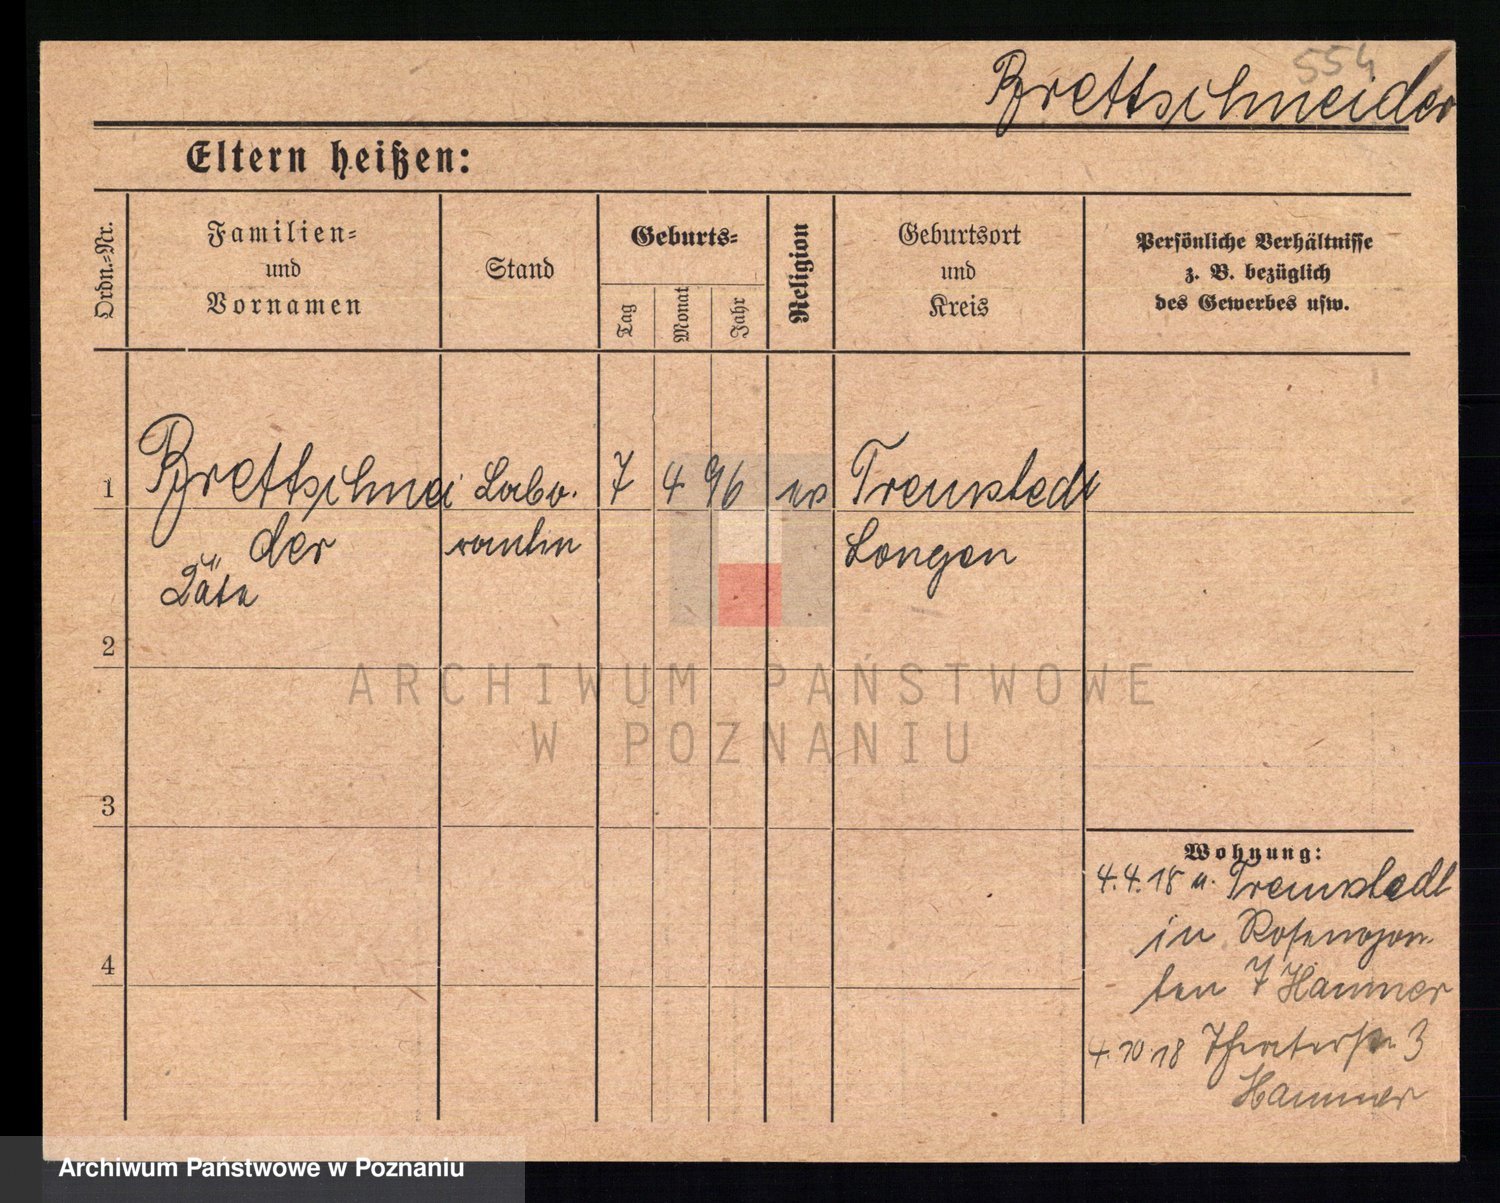 554
Brettschneider
Eltern heißen:
Ordn.-Nr.
Familien-
und
Vornamen
Stand
Geburts-
Tag
Monat
Jahr
Religion
Geburtsort
und
Kreis
Persönliche Verhältnisse
z. B. bezüglich
des Gewerbes usw.
1
Brettschnei
der
Labo.
rantin
7
4
96
ev
Langen
2
ARCHIWUM PAŃSTWOWE
W POZNANIU
3
4
Wohnung:
4.4.18
in Rosengar
ten 7 Hammer
4.10.18 Theaterstr. 3
Hammer
Archiwum Państwowe w Poznaniu